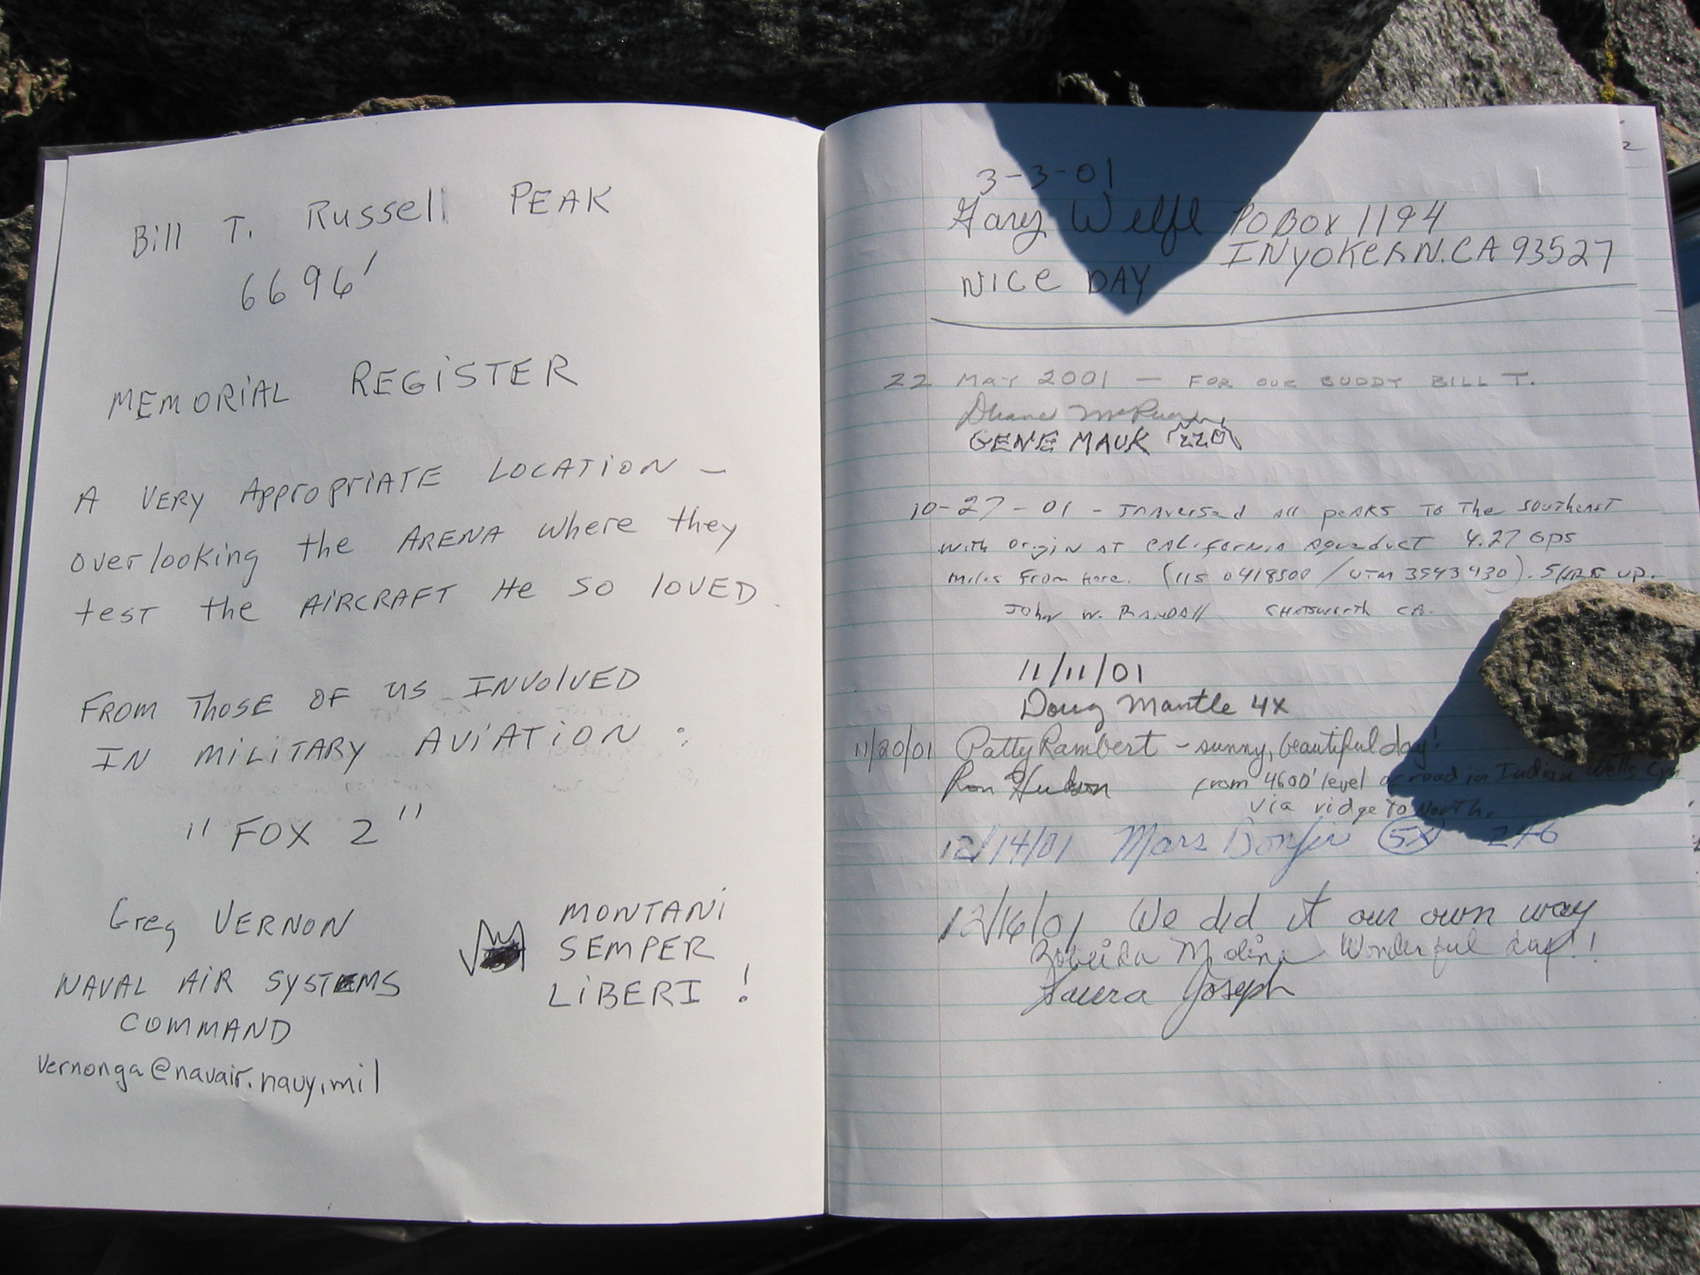 Bill T. Russell PEAK
6696'
MEMORIAL REGISTER
A VERY APPropriATE LOCATION –
overlooking the ARENA where they
test the AIRCRAFT He so loVED.
FROM THOSE OF US INVOLVED
IN MILITARY AVIATION :
"FOX 2"
Greg VERNON
NAVAL AIR SYSTEMS
COMMAND
vernonga@navair.navy.mil
MONTANI
SEMPER
LIBERI !
3-3-01
Gary PO BOX 1194
INYOKERN. CA 93527
NICE DAY
22 MAY 2001 — FOR OUR BUDDY BILL T.
Duane
GENE MAUK
10-27-01 - Traversed all peaks to the southeast
with origin at California Aqueduct 4.27 GPS
miles from here. (11S 0418500 / UTM 3943930).
John W. Randall Chatsworth CA.
11/11/01
Doug Mantle 4X
11/20/01 Patty Rambert - sunny, beautiful day!
Ron Hudson from 4600' level on road in Indian Wells Cyn
via ridge to North.
12/14/01 Mars Bonfire 5X 276
12/16/01 We did it our own way
Zobeida Molina Wonderful day!!
Laura Joseph